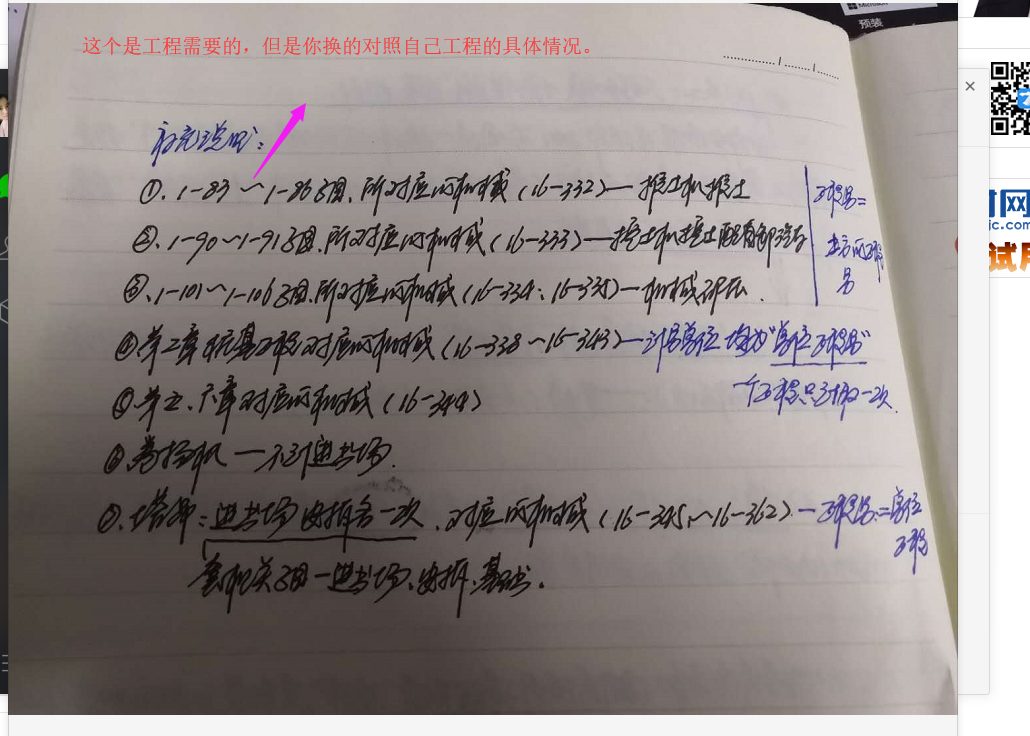 Microsoft
预装
这个是工程需要的，但是你换的对照自己工程的具体情况。
补充说明：
①、1-83～1-86子目、所对应的机械（16-332）—推土机推土
②、1-90～1-91子目、所对应的机械（16-333）—挖土机挖土配自卸汽车
③、1-101～1-106子目、所对应的机械（16-334、16-335）—机械碾压．
工程量=
土方的工程
量
④第二章桩基工程对应的机械（16-338～16-343）—计量单位均为"单位工程量"
一个工程只计取一次.
⑤第五、六章对应的机械（16-344）
⑥卷扬机—不计进出场.
⑦、塔吊：进出场安拆各一次、对应的机械（16-345～16-362）—工程量=单位
工程
套取相关子目—进出场、安拆、基础.
时网
jc.com
试用